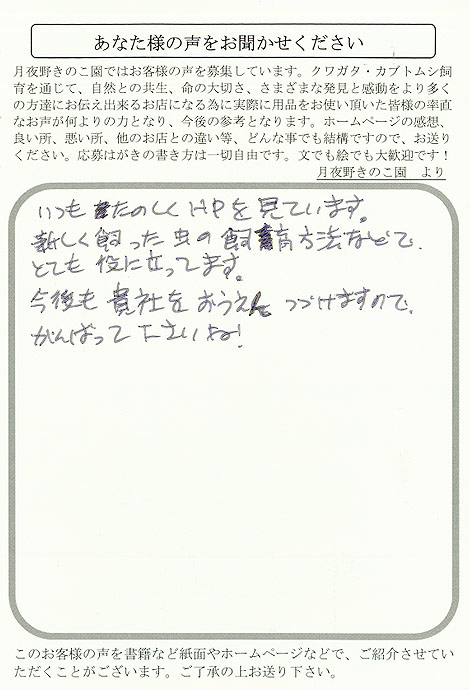 あなた様の声をお聞かせください
月夜野きのこ園ではお客様の声を募集しています。クワガタ・カブトムシ飼
育を通じて、自然との共生、命の大切さ、さまざまな発見と感動をより多く
の方達にお伝え出来るお店になる為に実際に用品をお使い頂いた皆様の率直
なお声が何よりの力となり、今後の参考となります。ホームページの感想、
良い所、悪い所、他のお店との違い等、どんな事でも結構ですので、お送り
ください。応募はがきの書き方は一切自由です。文でも絵でも大歓迎です！
月夜野きのこ園　より
いつもたのしくHPを見ています。
新しく飼った虫の飼育方法などで、
とても役に立ってます。
今後も貴社をおうえんしつづけますので、
がんばって下さいね!
このお客様の声を書籍など紙面やホームページなどで、ご紹介させてい
ただくことがございます。ご了承の上お送り下さい。